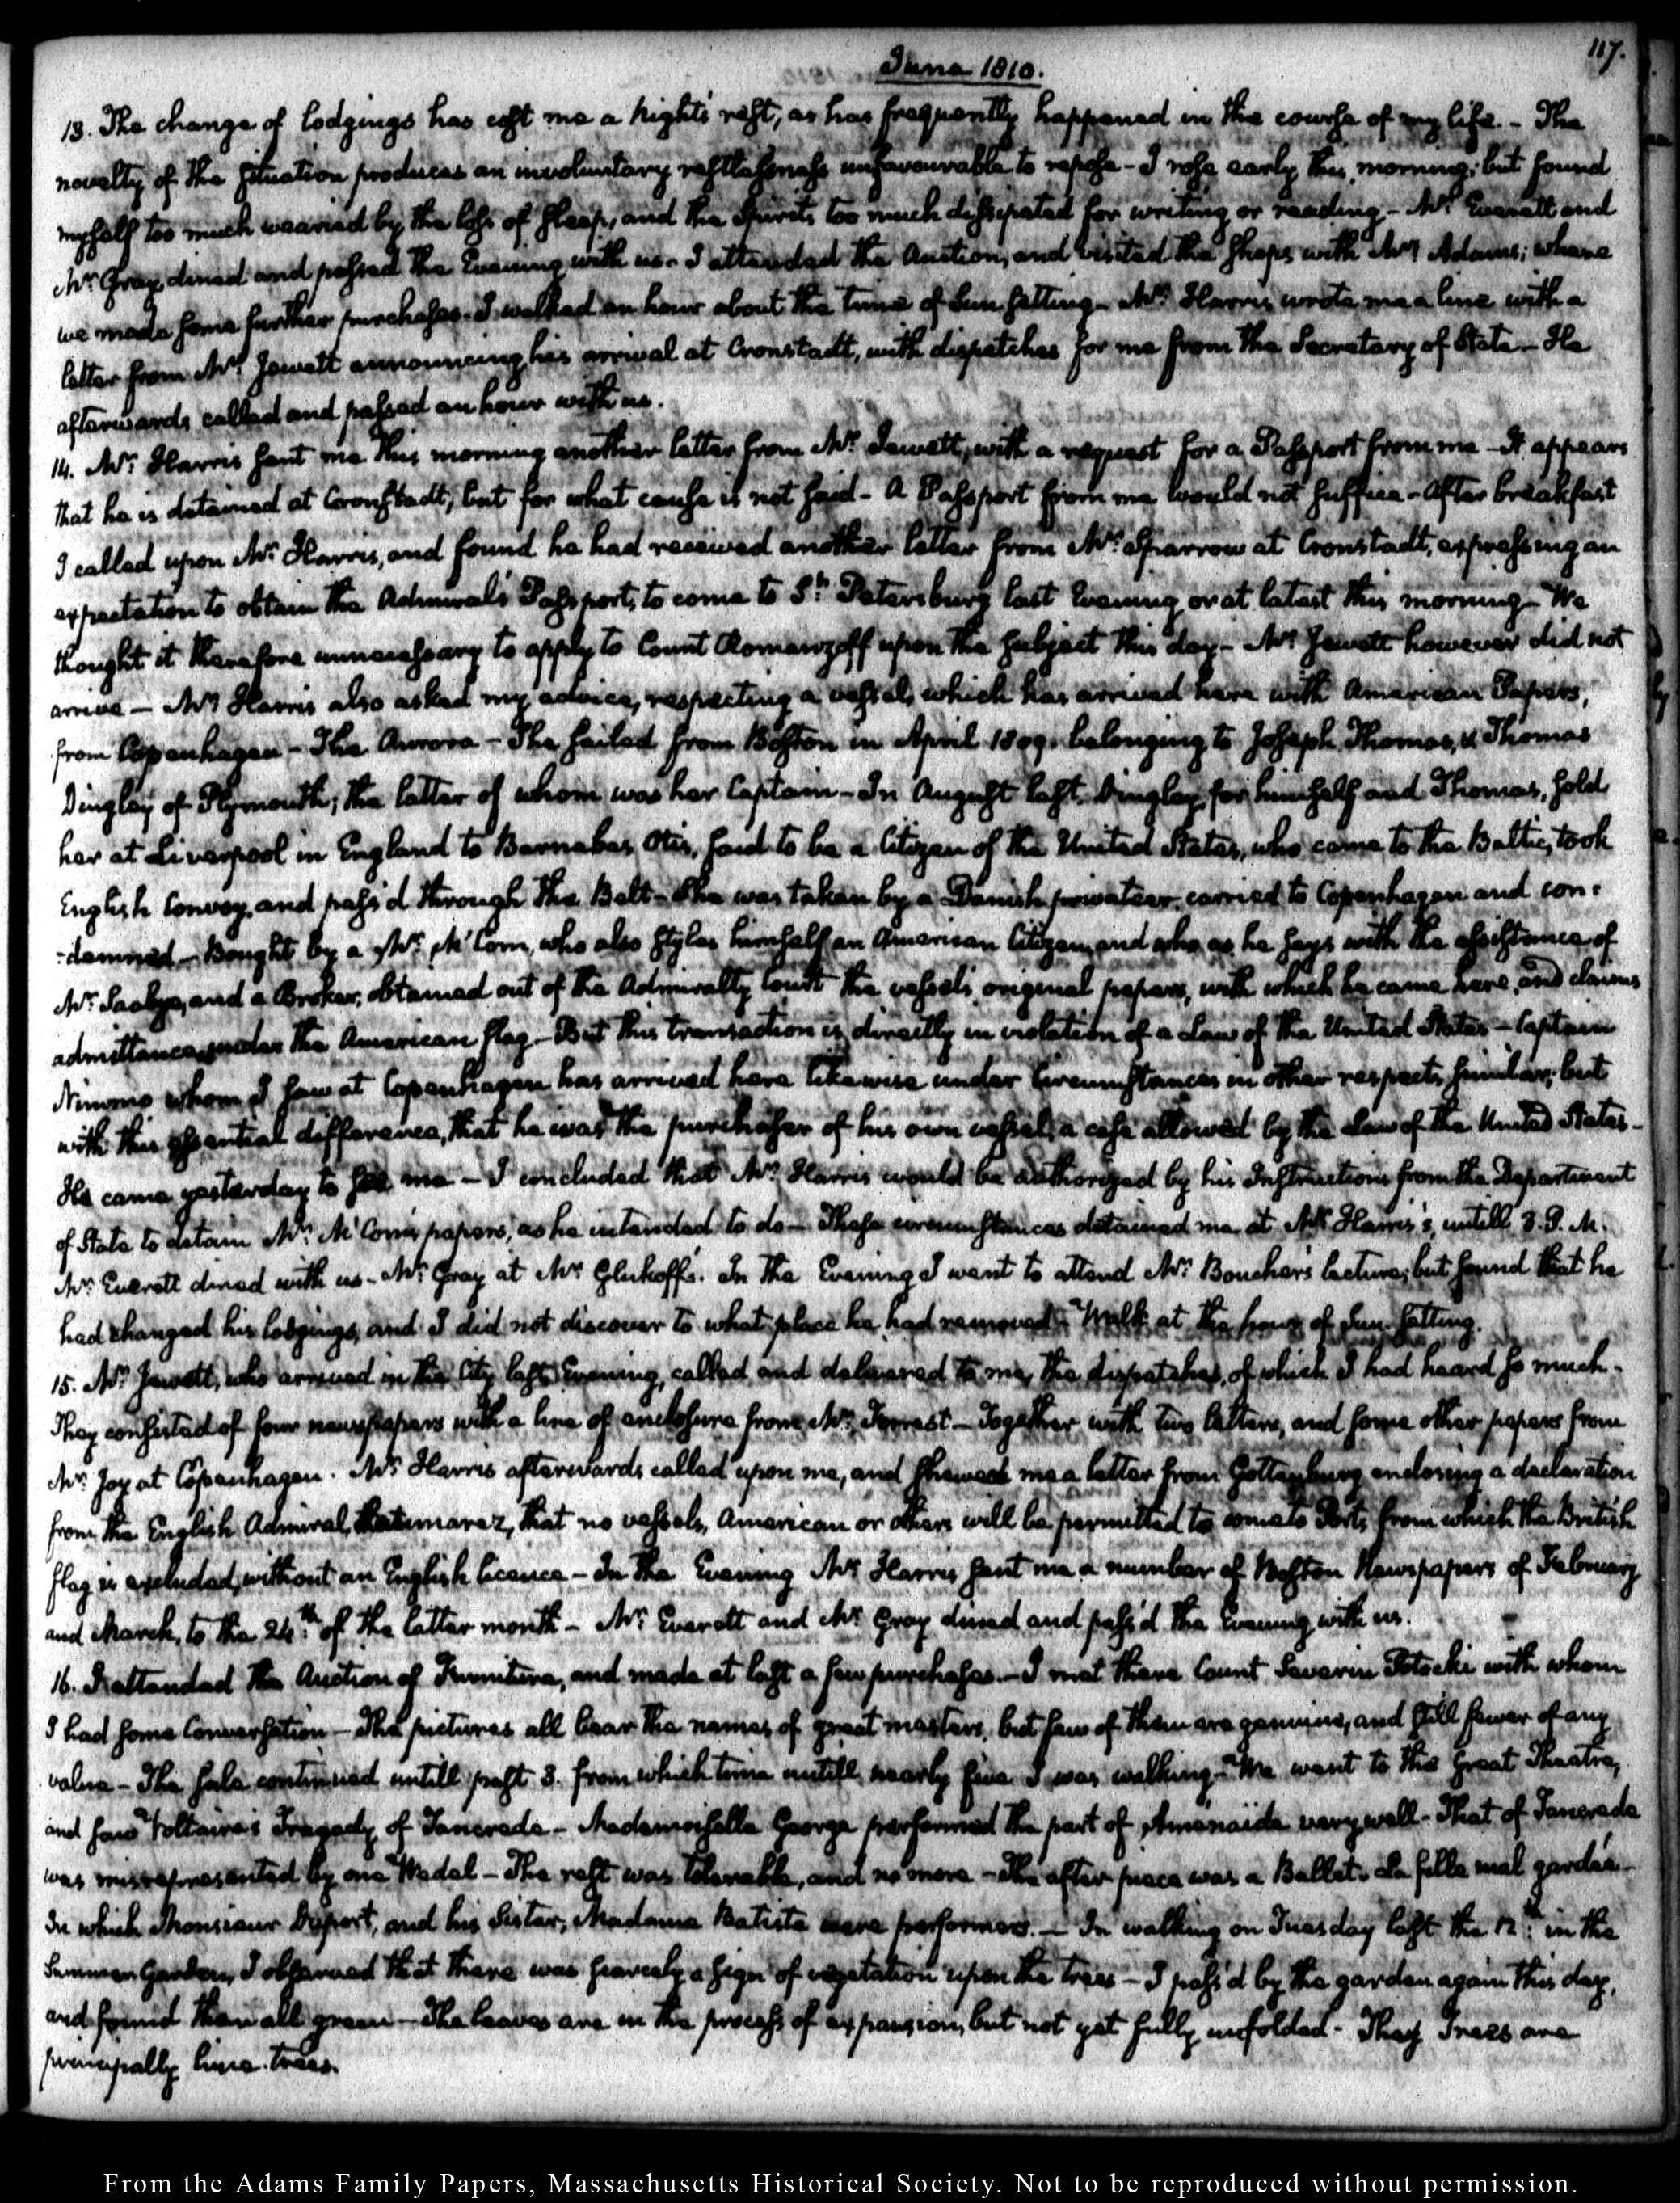 117.
June 1810.
13. The change of lodgings has cost me a night's rest, as has frequently happened in the course of my life. - The
novelty of the situation produces an involuntary restlessness unfavourable to repose - I rose early this morning; but found
myself too much wearied by the loss of sleep, and the Spirits too much dissipated for writing or reading - Mr. Everett and
Mr. Gray, dined and passed the Evening with us. I attended the Auction, and visited the shops with Mrs. Adams; where
we made some further purchases. I walked an hour about the time of Sun setting - Mr. Harris wrote me a line with a
letter from Mr. Jewett announcing his arrival at Cronstadt, with dispatches for me from the Secretary of State - He
afterwards called and passed an hour with us.
14. Mr. Harris sent me this morning another letter from Mr. Jewett, with a request for a Passport from me - It appears
that he is detained at Cronstadt, but for what cause is not said - A Passport from me would not suffice - After breakfast
I called upon Mr. Harris, and found he had received another letter from Mr. Sparrow at Cronstadt, expressing an
expectation to obtain the Admiral's Passport, to come to St. Petersburg last Evening or at latest this morning - We
thought it therefore unnecessary to apply to Count Romanzoff upon the subject this day - Mr. Jewett however did not
arrive - Mr. Harris also asked my advice, respecting a vessel, which has arrived here with American Papers,
from Copenhagen - The Aurora - She sailed from Boston in April 1809. belonging to Joseph Thomas, & Thomas
Dingley of Plymouth; the latter of whom was her Captain - In August last, Dingley, for himself and Thomas, sold
her at Liverpool in England to Barnabas Otis, said to be a Citizen of the United States, who came to the Baltic, took
English Convoy, and pass'd through the Belt - She was taken by a Danish privateer, carried to Copenhagen and con-
-demned - Bought by a Mr. M'Corn, who also styles himself an American Citizen, and who, as he says with the assistance of
Mr. Saabye, and a Broker, obtained out of the Admiralty Court the vessel's original papers, with which he came here, and claims
admittance, under the American flag - But this transaction is directly in violation of a Law of the United States - Captain
Nimmo whom I saw at Copenhagen has arrived here likewise under Circumstances in other respects similar; but
with this essential difference, that he was the purchaser of his own vessel, a case allowed by the Law of the United States -
He came yesterday to see me - I concluded that Mr. Harris would be authorized by his Instructions from the Department
of State to detain Mr. M'Corn's papers, as he intended to do - These circumstances detained me at Mr. Harris's, untill 3. P. M.
Mr. Everett dined with us - Mr. Gray at Mr. Glukoff's. In the Evening I went to attend Mr. Boucher's lecture; but found that he
had changed his lodgings, and I did not discover to what place he had removed. Walk at the hour of Sun-setting.
15. Mr. Jewett, who arrived in the City last Evening, called and delivered to me, the dispatches, of which I had heard so much -
They consisted of four newspapers with a line of enclosure from Mr. Forrest - Together with two letters, and some other papers from
Mr. Joy at Copenhagen. Mr. Harris afterwards called upon me, and shewed me a letter from Gottenburg enclosing a declaration
from the English Admiral, that no vessels, American or others will be permitted to come to Ports from which the British
flag is excluded, without an English licence - In the Evening Mr. Harris sent me a number of Boston Newspapers of February
and March, to the 24th. of the latter month - Mr. Everett and Mr. Gray dined and pass'd the Evening with us.
16. I attended the Auction of Furniture, and made at last a few purchases. - I met there Count Severin Potocki with whom
I had some Conversation - The pictures all bear the names of great masters, but few of them are genuine, and still fewer of any
value - The sale continued untill past 3. from which time untill nearly five I was walking - We went to the Great Theatre,
and saw Voltaire's Tragedy of Tancrede. - Mademoiselle George performed the part of Amenaide very well - That of Tancrede
was misrepresented by one Wedel - The rest was tolerable, and no more - The after piece was a Ballet. La fille mal gardée -
In which Monsieur Duport, and his Sister, Madame Batiste were performers. - In walking on Tuesday last the 12th. in the
Summer Garden, I observed that there was scarcely a sign of vegetation upon the trees - I pass'd by the garden again this day,
and found them all green - The leaves are in the process of expansion, but not yet fully unfolded - These Trees are
principally lime-trees.
From the Adams Family Papers, Massachusetts Historical Society. Not to be reproduced without permission.